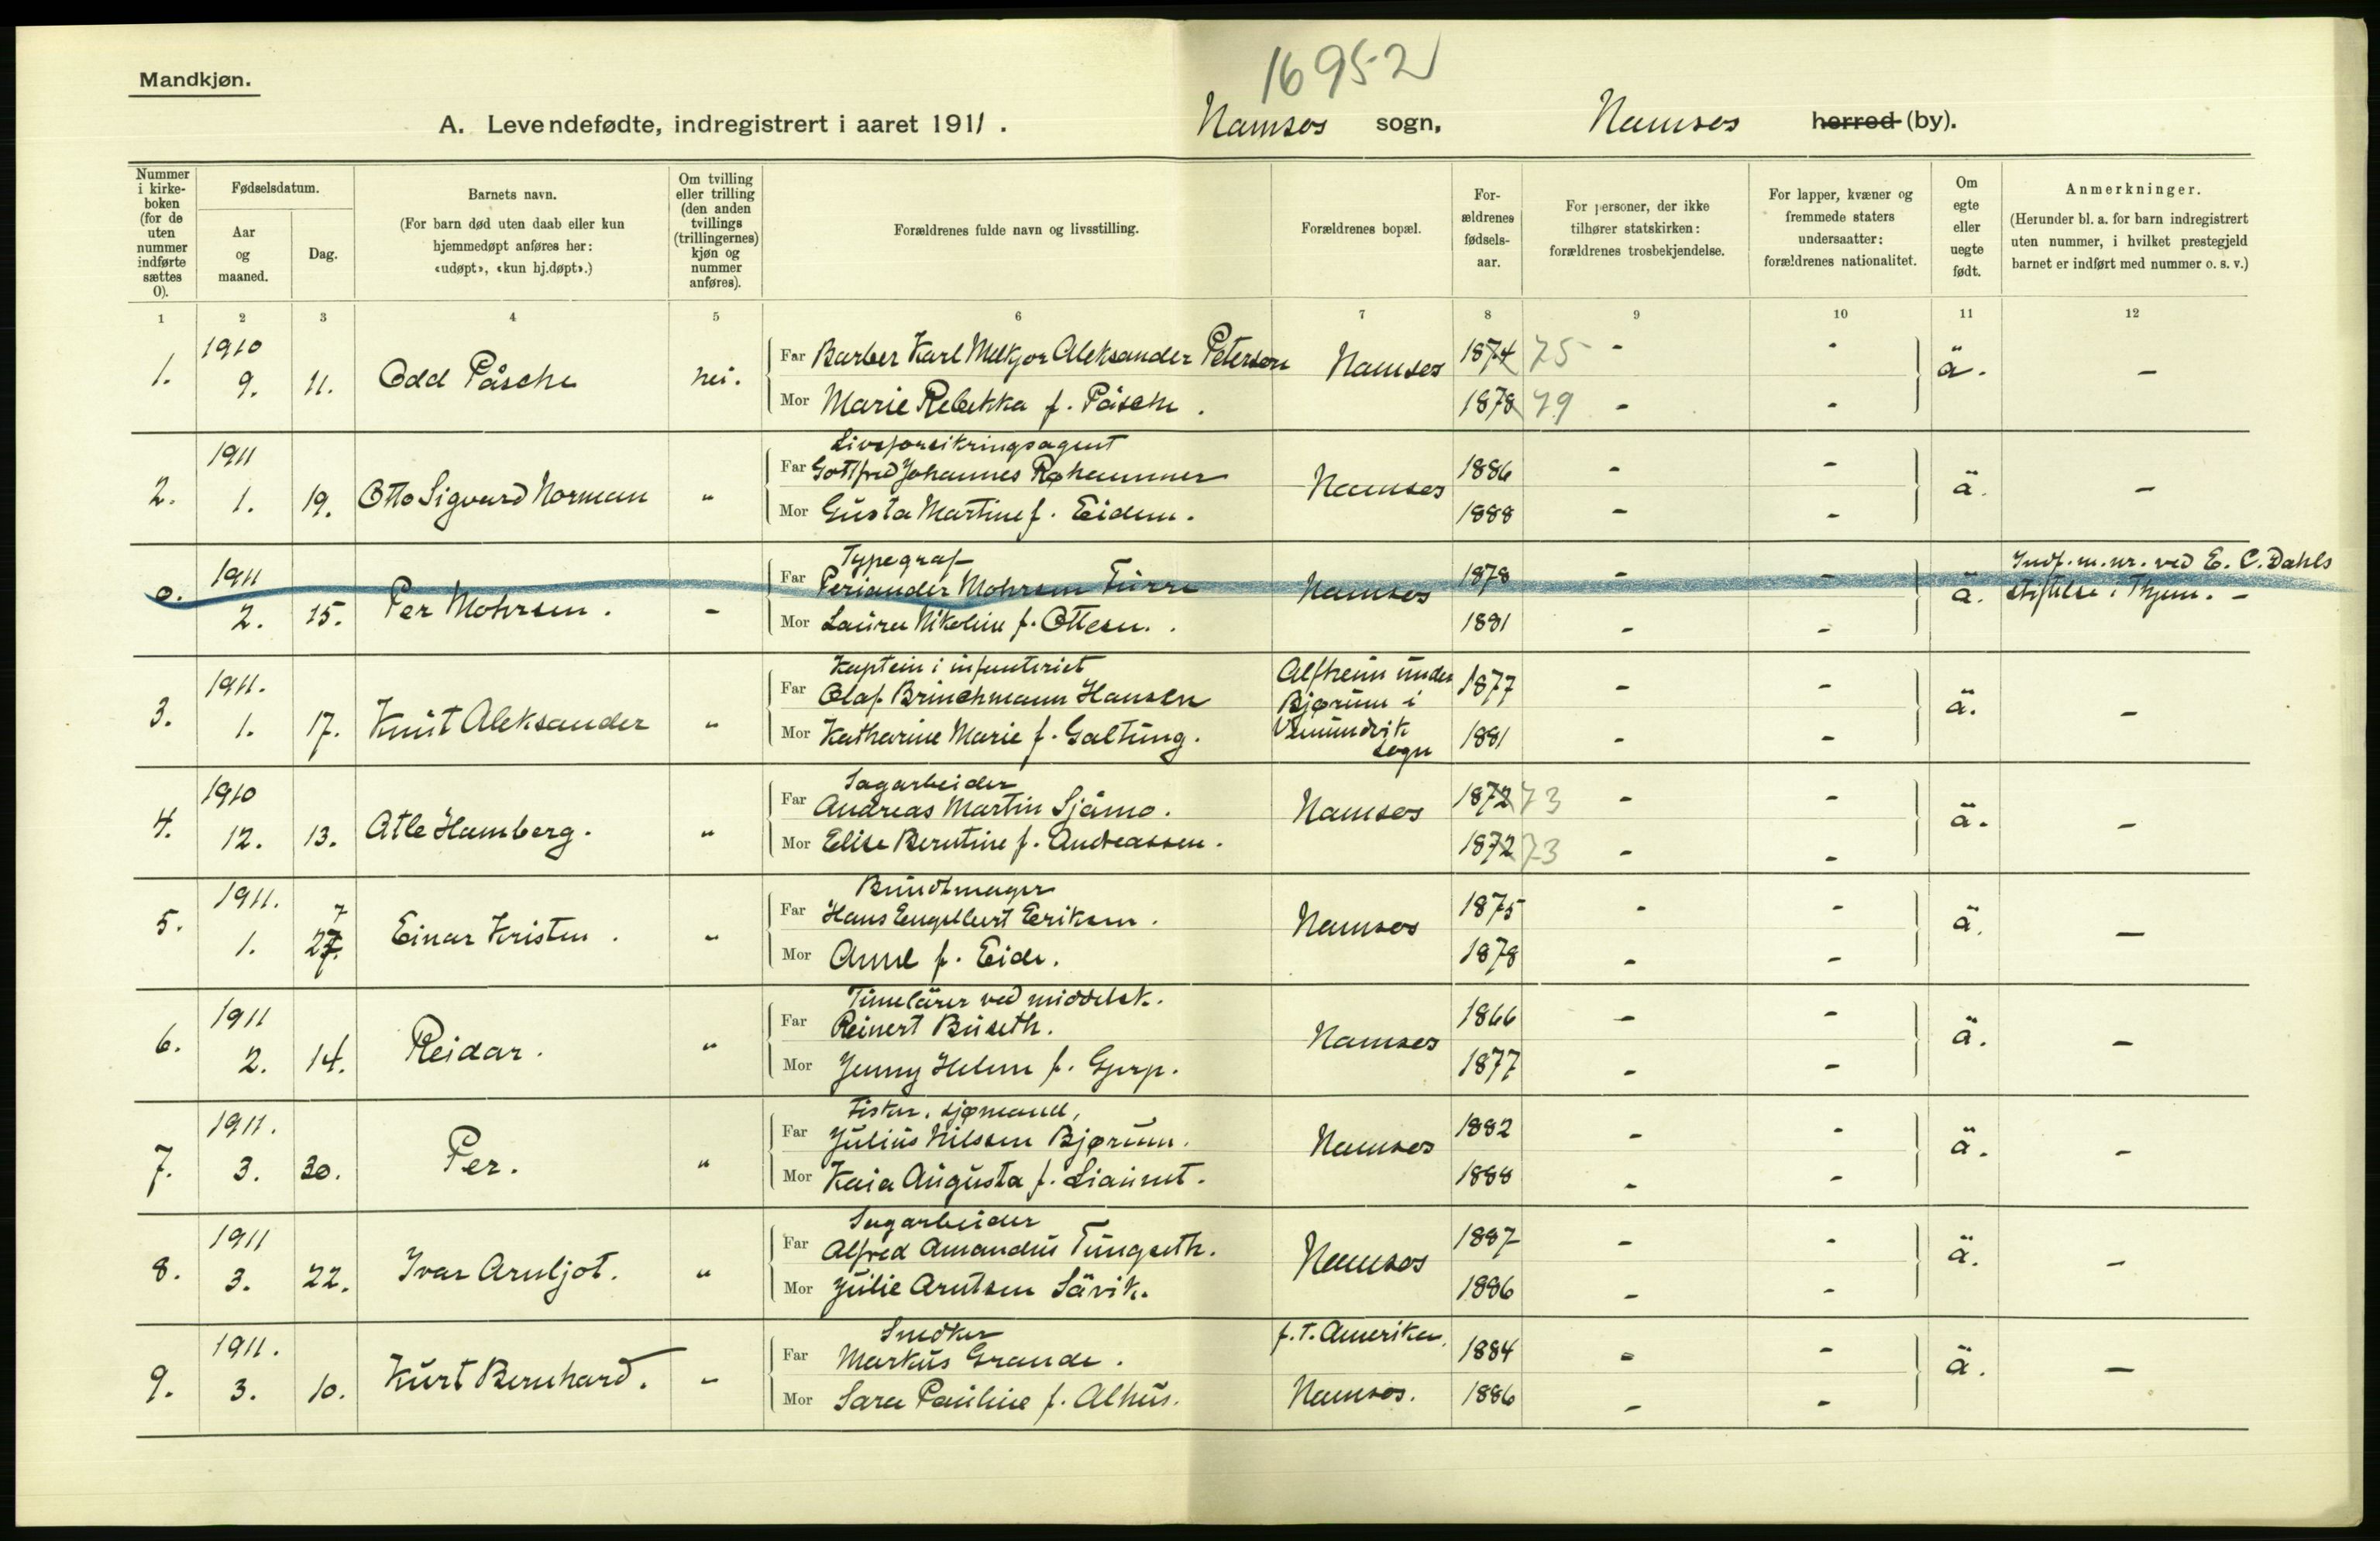 16952
Mandkjøn.
A. Levendefødte, indregistrert i aaret 1911. Namsos sogn, Namsos herred (by).
Nummer i kirkeboken (for de uten nummer indførte sættes 0).
Fødselsdatum.
Aar og maaned.
Dag.
Barnets navn.
(For barn død uten daab eller kun hjemmedøpt anføres her: «udøpt», «kun hj.døpt».)
Om tvilling eller trilling (den anden tvillings (trillingernes) kjøn og nummer anføres).
Forældrenes fulde navn og livsstilling.
Forældrenes bopæl.
Forældrenes fødselsaar.
For personer, der ikke tilhører statskirken: forældrenes trosbekjendelse.
For lapper, kvæner og fremmede staters undersaatter: forældrenes nationalitet.
Om egte eller uegte født.
Anmerkninger.
(Herunder bl. a. for barn indregistrert uten nummer, i hvilket prestegjeld barnet er indført med nummer o. s. v.)
1 2 3 4 5 6 7 8 9 10 11 12
1. 1910 9. 11. Odd Påsche nei.
Far Barber Karl Melkjor Aleksander Peterson Namsos 1874 75 - - ä. -
Mor Marie Rebekka f. Påsche. 1878 79 - -
2. 1911 1. 19. Otto Sigvard Norman "
Livsforsikringsagent
Far Gottfred Johannes Røhammer Namsos 1886 - - ä. -
Mor Gusta Martine f. Eidem. 1888 - -
0. 1911 2. 15. Per Mohrsen. -
Typograf
Far Periander Mohrsen Fürre Namsos 1878 - - ä. Indf. m. nr. ved E. C. Dahls
stiftelse i Thjem. -
Mor Laura Nikoline f. Ottesen. 1881 - -
3. 1911. 1. 17. Knut Aleksander "
Kaptein i infanteriet
Far Olaf Brinchmann Hansen Alfheim under Bjørum i Vemundvik sogn 1877 - - ä. -
Mor Katharine Marie f. Galtung. 1881 - -
4. 1910 12. 13. Atle Hamberg. "
Sagarbeider
Far Andreas Martin Sjåmo. Namsos 1872 73 - - ä. -
Mor Elise Berntine f. Andreassen. 1872 73 - -
5. 1911. 1. 27. 7 Einar Kristen. "
Bundtmager
Far Hans Engelbert Eriksen. Namsos 1875 - - ä. -
Mor Anne f. Eide. 1878 - -
6. 1911 2. 14. Reidar. "
Timelärer ved middelsk.
Far Reinert Buseth. Namsos 1866 - - ä. -
Mor Jenny Helene f. Gjerp. 1877 - -
7. 1911. 3. 30. Per. "
Fisker, sjømand,
Far Julius Nilssen Bjørum. Namsos 1882 - - ä. -
Mor Kaia Augusta f. Liaunet. 1888 - -
8. 1911 3. 22. Ivar Arnljot. "
Sagarbeider
Far Alfred Amandus Tungseth. Namsos 1887 - - ä. -
Mor Julie Arntsen Sävik. 1886 - -
9. 1911. 3. 10. Kurt Bernhard. -
Snedker
Far Markus Grande. f. t. Amerika. 1884 - - ä. -
Mor Sara Pauline f. Alhus. Namsos. 1886 - -